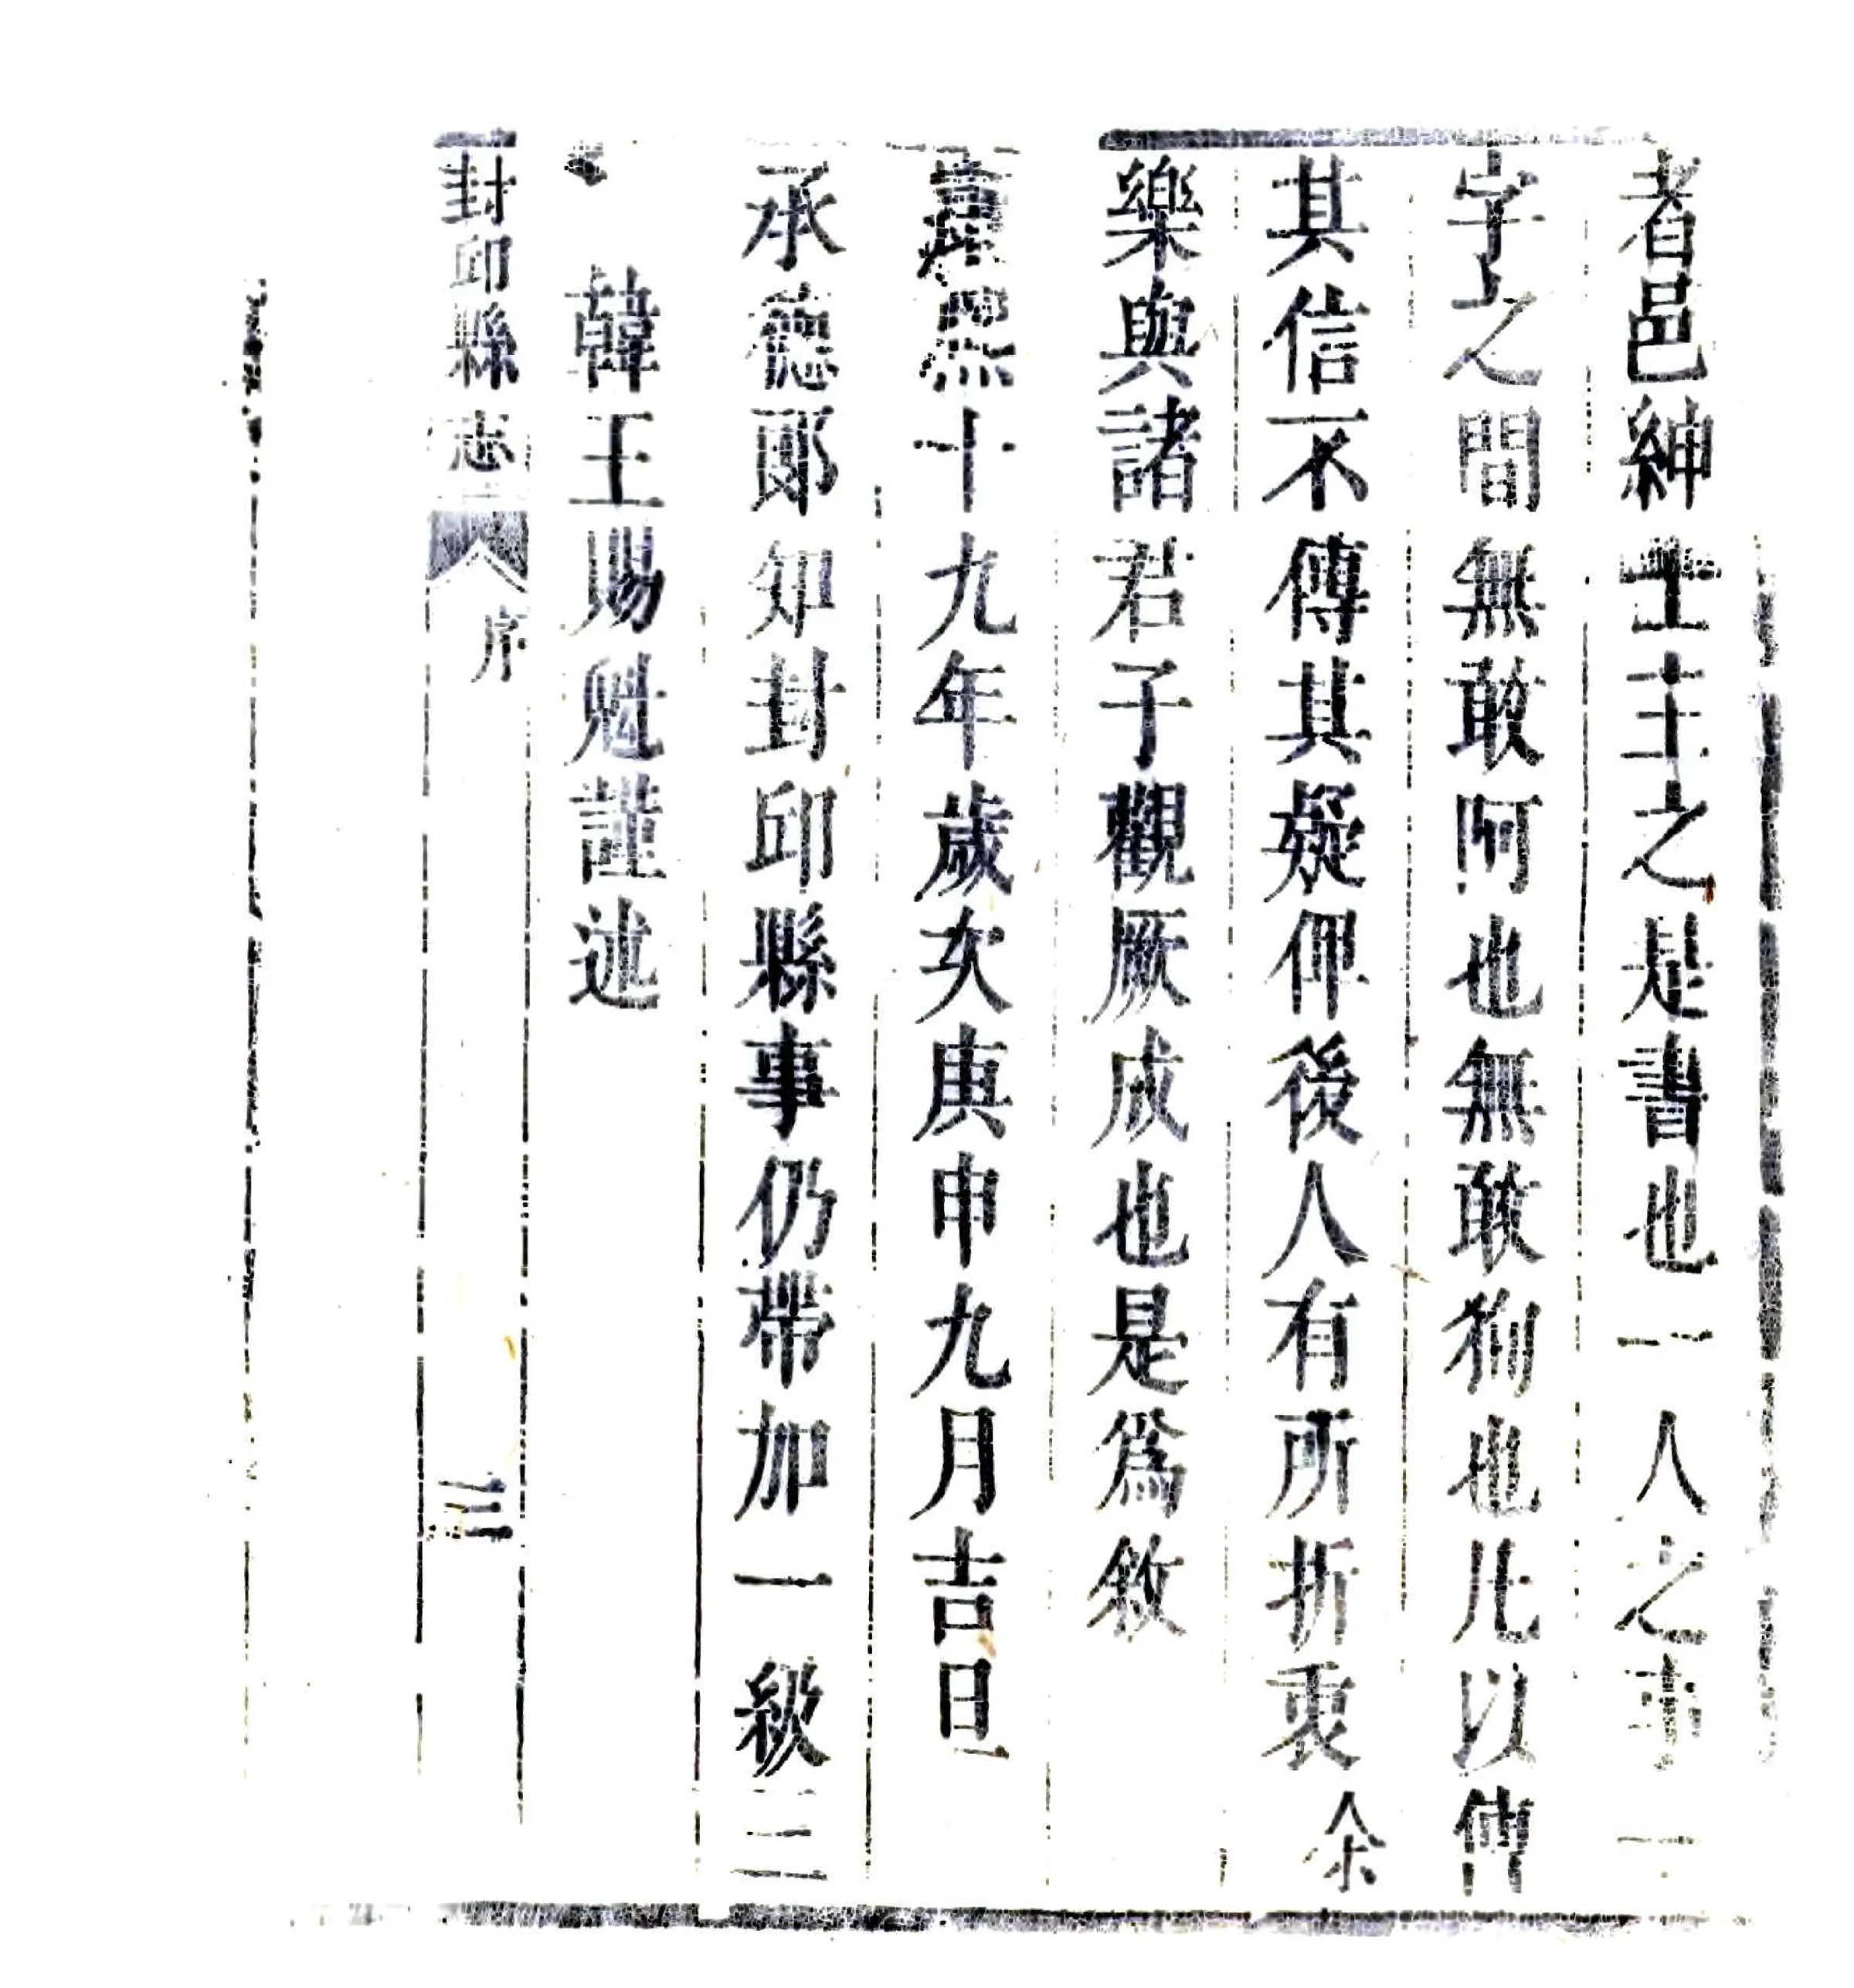 者邑紳士主之是書也一人之事一
字之間無敢阿也無敢狥也凡以傳
其信不傳其疑俾後人有所折衷余
樂與諸君子觀厥成也是爲敘
康熙十九年歲次庚申九月吉旦
承德郎知封邱縣事仍帶加一級三
韓王賜魁謹述
封邱縣志 序 三